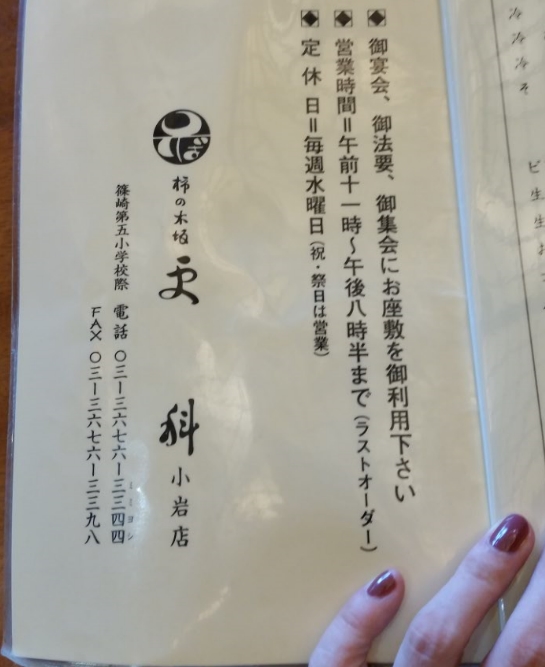 冷
冷
冷
そ
ビ
生
生
お
◆御宴会、御法要、御集会にお座敷を御利用下さい
◆営業時間＝午前十一時〜午後八時半まで（ラストオーダー）
◆定休日＝毎週水曜日（祝・祭日は営業）
そば
柿の木坂 更科 小岩店
篠崎第五小学校際 電話 〇三ー三六七六ー三三四四
FAX 〇三ー三六七六ー三三九八